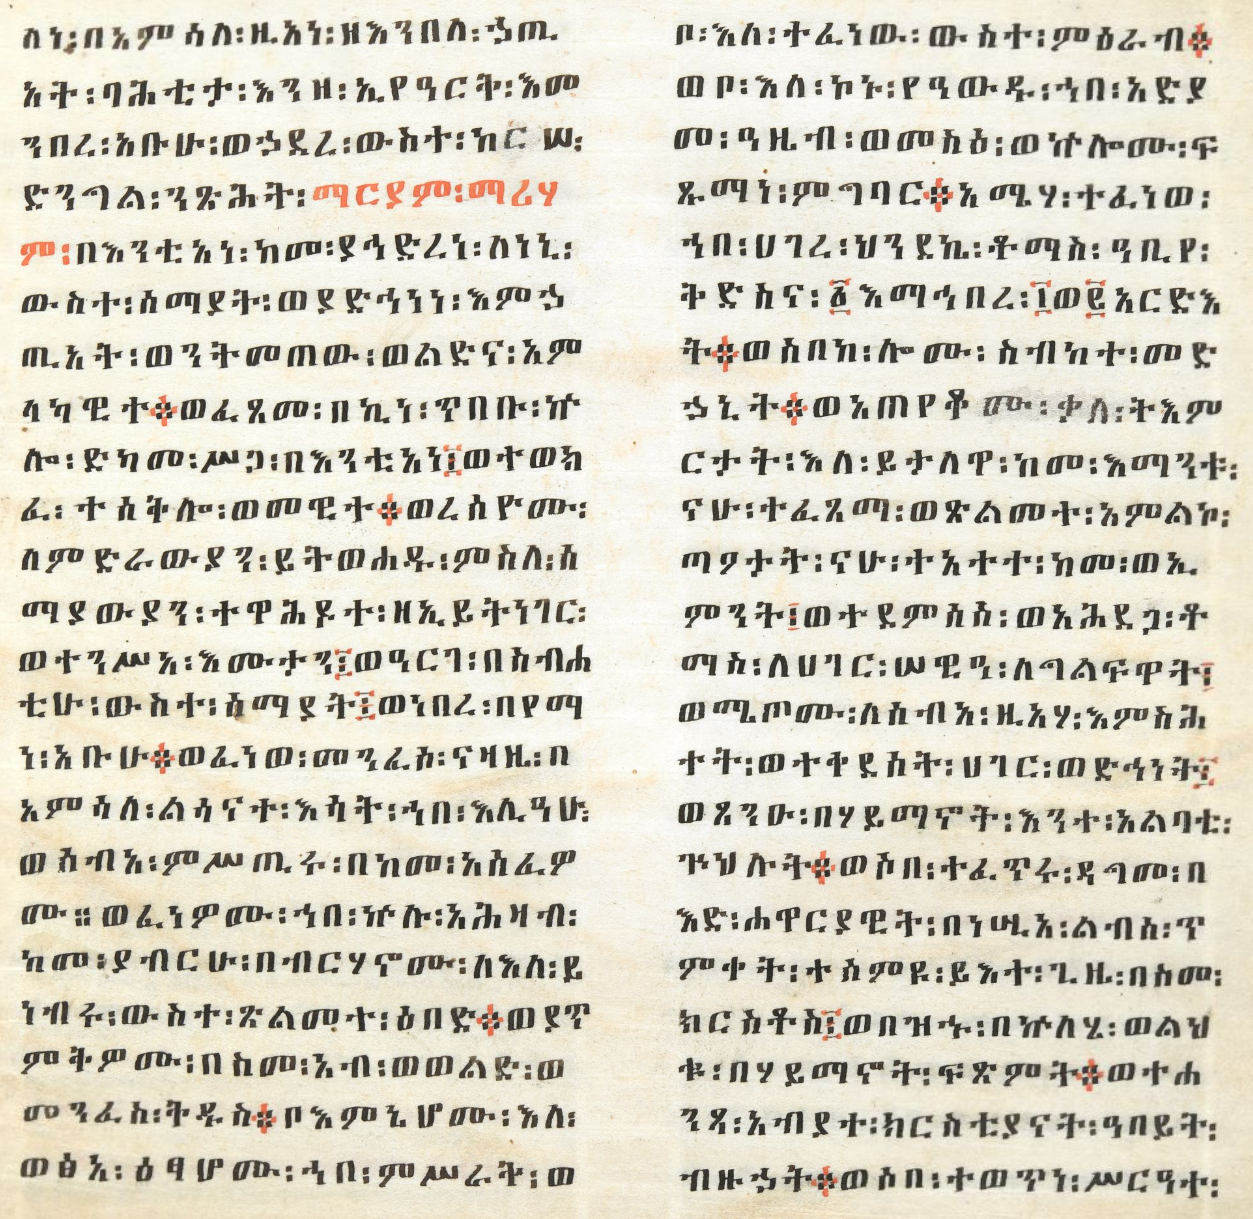 ስነ፡በአምሳለ፡ዚአነ፡ዘእንበለ፡ኃጢ
አት፡ባሕቲታ፡እንዘ፡ኢየዓርት፡እመ
ንበረ፡አቡሁ፡ወኃደረ፡ውስተ፡ከርሠ፡
ድንግል፡ንጽሕት፡ማርያም፡ማሪሃ
ም፡በእንቲአነ፡ከመ፡ያኅድረነ፡ስነኒ፡
ውስተ፡ሰማያት፡ወያድኅነነ፡እምኃ
ጢአት፡ወንትመጠው፡ወልድና፡አም
ላካዊተ፨ወፈጸመ፡በኪነ፡ጥበቡ፡ኵ
ሎ፡ድካመ፡ሥጋ፡በእንቲአነ፤ወተወክ
ፈ፡ተሰቅሎ፡ወመዊተ፨ወረሰዮሙ፡
ለምድራውያን፡ይትወሐዱ፡ምስለ፡ሰ
ማያውያን፡ተዋሕዶተ፡ዘኢይትነገር፡
ወተንሥአ፡እሙታን፤ወዓርገ፡በስብሐ
ቲሁ፡ውስተ፡ሰማያት፤ወነበረ፡በየማ
ነ፡አቡሁ፨ወፈነወ፡መንፈሰ፡ናዛዜ፡በ
አምሳለ፡ልሳናተ፡እሳት፡ኀበ፡እሊዓሁ፡
ወሰብአ፡ምሥጢሩ፡በከመ፡አሰፈዎ
ሙ። ወፈነዎሙ፡ኀበ፡ኵሉ፡አሕዛብ፡
ከመ፡ያብርሁ፡በብርሃኖሙ፡ለእለ፡ይ
ነብሩ፡ውስተ፡ጽልመተ፡ዕበድ፨ወያጥ
ምቅዎሙ፡በስመ፡አብ፡ወወልድ፡ወ
መንፈስ፡ቅዱስ፨ቦእምኔሆሙ፡እለ፡
ወፅአ፡ዕፃሆሙ፡ኀበ፡ምሥራቅ፡ወ
ቦ፡እለ፡ተፈነው፡ውስተ፡ምዕራብ፨
ወቦ፡እለ፡ኮኑ፡የዓውዱ፡ኀበ፡አድያ
መ፡ዓዜብ፡ወመስዕ፡ወኵሎሙ፡ፍ
ጹማነ፡ምግባር፨አሜሃ፡ተፈነወ፡
ኀበ፡ሀገረ፡ህንደኬ፡ቶማስ፡ዓቢየ፡
ቅድስና፡፩እማኅበረ፡፲ወ፪አርድእ
ት፨ወሰበከ፡ሎሙ፡ስብከተ፡መድ
ኃኒት፨ወአጠየቆሙ፡ቃለ፡ትእም
ርታት፡እለ፡ይታለዋ፡ከመ፡እማንቱ፡
ናሁ፡ተፈጸማ፡ወጽልመተ፡አምልኮ፡
ጣዖታት፡ናሁ፡ተአተተ፡ከመ፡ወኢ
ምንት፤ወተደምሰሰ፡ወአሕደጋ፡ቶ
ማስ፡ለሀገር፡ሠዊዓ፡ለግልፍዋት፤
ወሚጦሙ፡ለሰብአ፡ዚአሃ፡እምስሕ
ተት፡ወተቀደሰት፡ሀገር፡ወድኅነት፤
ወጸንዑ፡በሃይማኖት፡እንተ፡አልባቲ፡
ኑህሉት፨ወሶበ፡ተፈጥሩ፡ዳግመ፡በ
እድ፡ሐዋርያዊት፡በነሢአ፡ልብሰ፡ጥ
ምቀት፡ተሰምዩ፡ይእተ፡ጊዜ፡በስመ፡
ክርስቶስ፤ወበዝኁ፡በኵለሄ፡ወልህ
ቁ፡በሃይማኖት፡ፍጽምት፨ወተሐ
ንጻ፡አብያተ፡ክርስቲያናት፡ዓበይት፡
ብዙኃት፨ወሶበ፡ተወጥነ፡ሥርዓተ፡